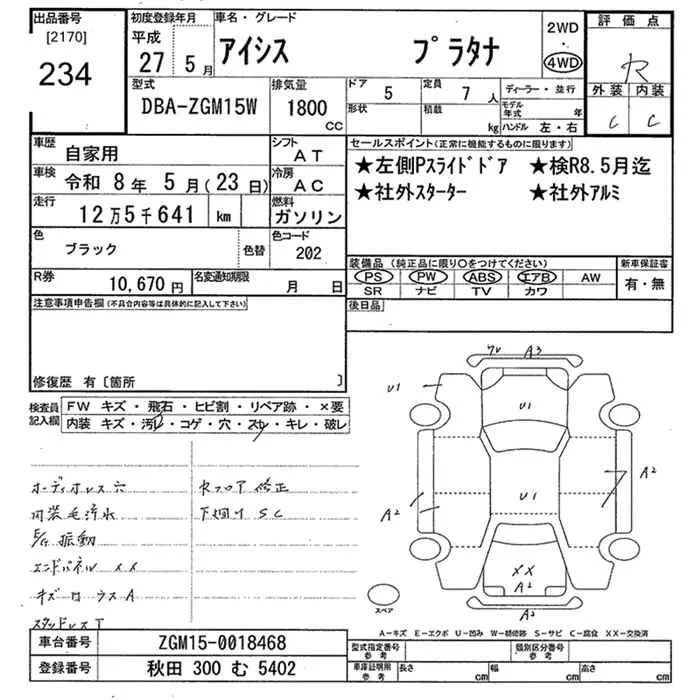 出品番号 初度登録年月 車名・グレード 評価点
[2170] 平成 2WD
234 27 5 月 アイシス プラタナ ・ R
4WD
型式 排気量 ドア 5 定員 7 人 ディーラー・並行 外装 内装
DBA-ZGM15W 1800 CC 形状 積載 kg モデル年式 年 C C
ハンドル 左・右
車歴 自家用 シフト AT セールスポイント(正常に機能するものに限ります)
車検 令和 8 年 5 月 (23 日) 冷房 AC ★左側Pスライドドア ★検R8.5月迄
走行 12万5千641 km 燃料 ガソリン ★社外スターター ★社外アルミ
色 ブラック 色替 色コード 202
装備品 (純正品に限り○をつけてください) 新車保証書
R券 10,670 円 名変通知期限 月 日 PS PW ABS エアB AW 有・無
SR ナビ TV カワ
注意事項申告欄(不具合内容等は具体的に記入して下さい) 後日品
修復歴 有〔箇所 〕
検査員記入欄 FW キズ・飛石・ヒビ割・リペア跡・×要
内装 キズ・汚レ・コゲ・穴・スレ・キレ・破レ
オーディオレス穴 Rフロア修正
内装毛汚れ 下廻りSC
E/G振動
エンドパネルXX
キズロウスA
スタッドレスT
A3
U1 U1
A2
U1
A2
XX
A2
A2
スペア
A-キズ E-エクボ U-凹み W-補修跡 S-サビ C-腐食 XX-交換済
車台番号 ZGM15-0018468 型式指定番号 参考 類別区分番号 参考
登録番号 秋田 300 む 5402 車庫証明用 参考 長さ cm 幅 cm 高さ cm